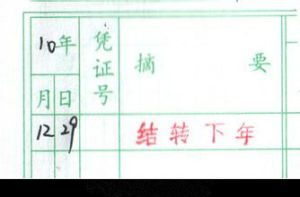 10年
凭证号
摘 要
月 日
12 29
结转下年